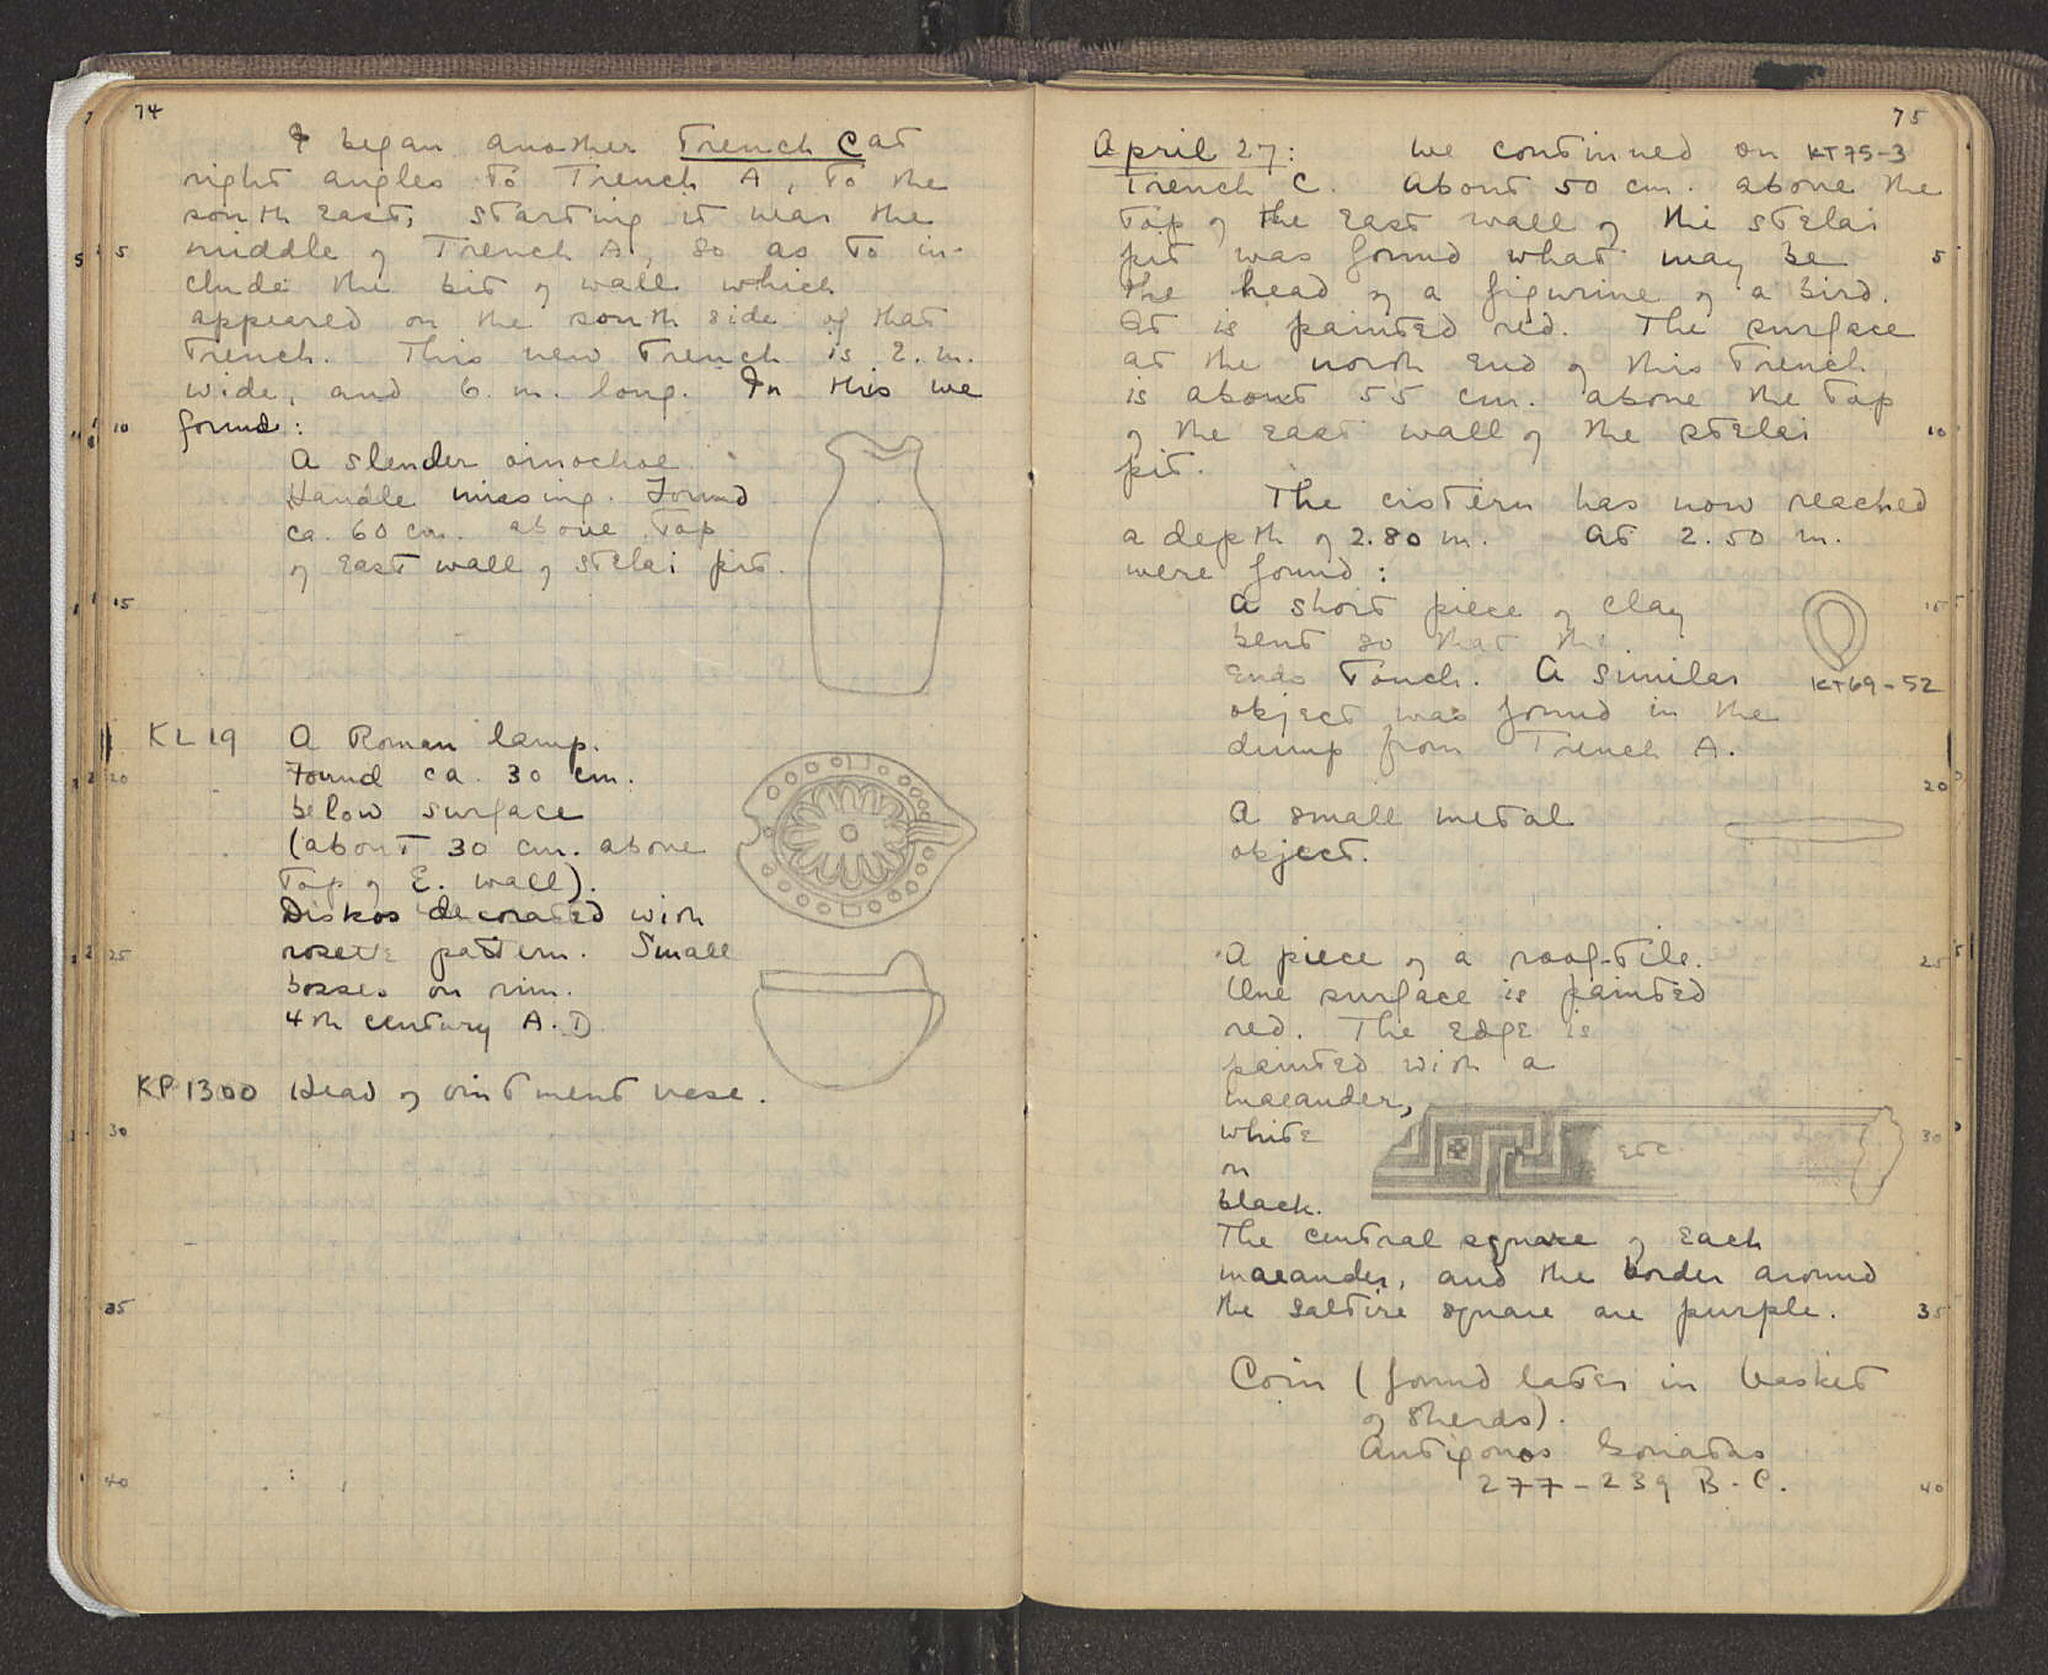 74
I began another Trench C at
right angles to Trench A, to the
south east, starting it near the
middle of Trench A, so as to in-
clude the bit of wall which
appeared on the south side of that
trench. This new trench is 2. m.
wide, and 6. m. long. In this we
found:
A slender oinochoe.
Handle missing. Found
ca. 60 cm. above top
of East wall of stelai pit.
KL 19 A Roman lamp.
Found ca. 30 cm.
below surface
(about 30 cm. above
top of E. wall).
Diskos decorated with
rosette pattern. Small
bosses on rim.
4th century A.D.
KP 1300 Head of ointment vase.
5
10
15
20
25
30
35
40
75
April 27: We continued on KT75-3
Trench C. About 50 cm. above the
top of the East wall of the stelai
pit was found what may be
the head of a figurine of a bird.
It is painted red. The surface
at the north end of this trench
is about 55 cm. above the top
of the East wall of the stelai
pit.
The cistern has now reached
a depth of 2.80 m. At 2.50 m.
were found:
A short piece of clay
bent so that the
ends touch. A similar KT69-52
object was found in the
dump from Trench A.
A small metal
object.
A piece of a roof-tile.
One surface is painted
red. The edge is
painted with a
maeander,
white
on
black.
etc.
The central square of each
maeander, and the border around
the saltire square are purple.
Coin (found later in basket
of sherds).
Antigonos Gonatas
277-239 B.C.
5
10
15
20
25
30
35
40